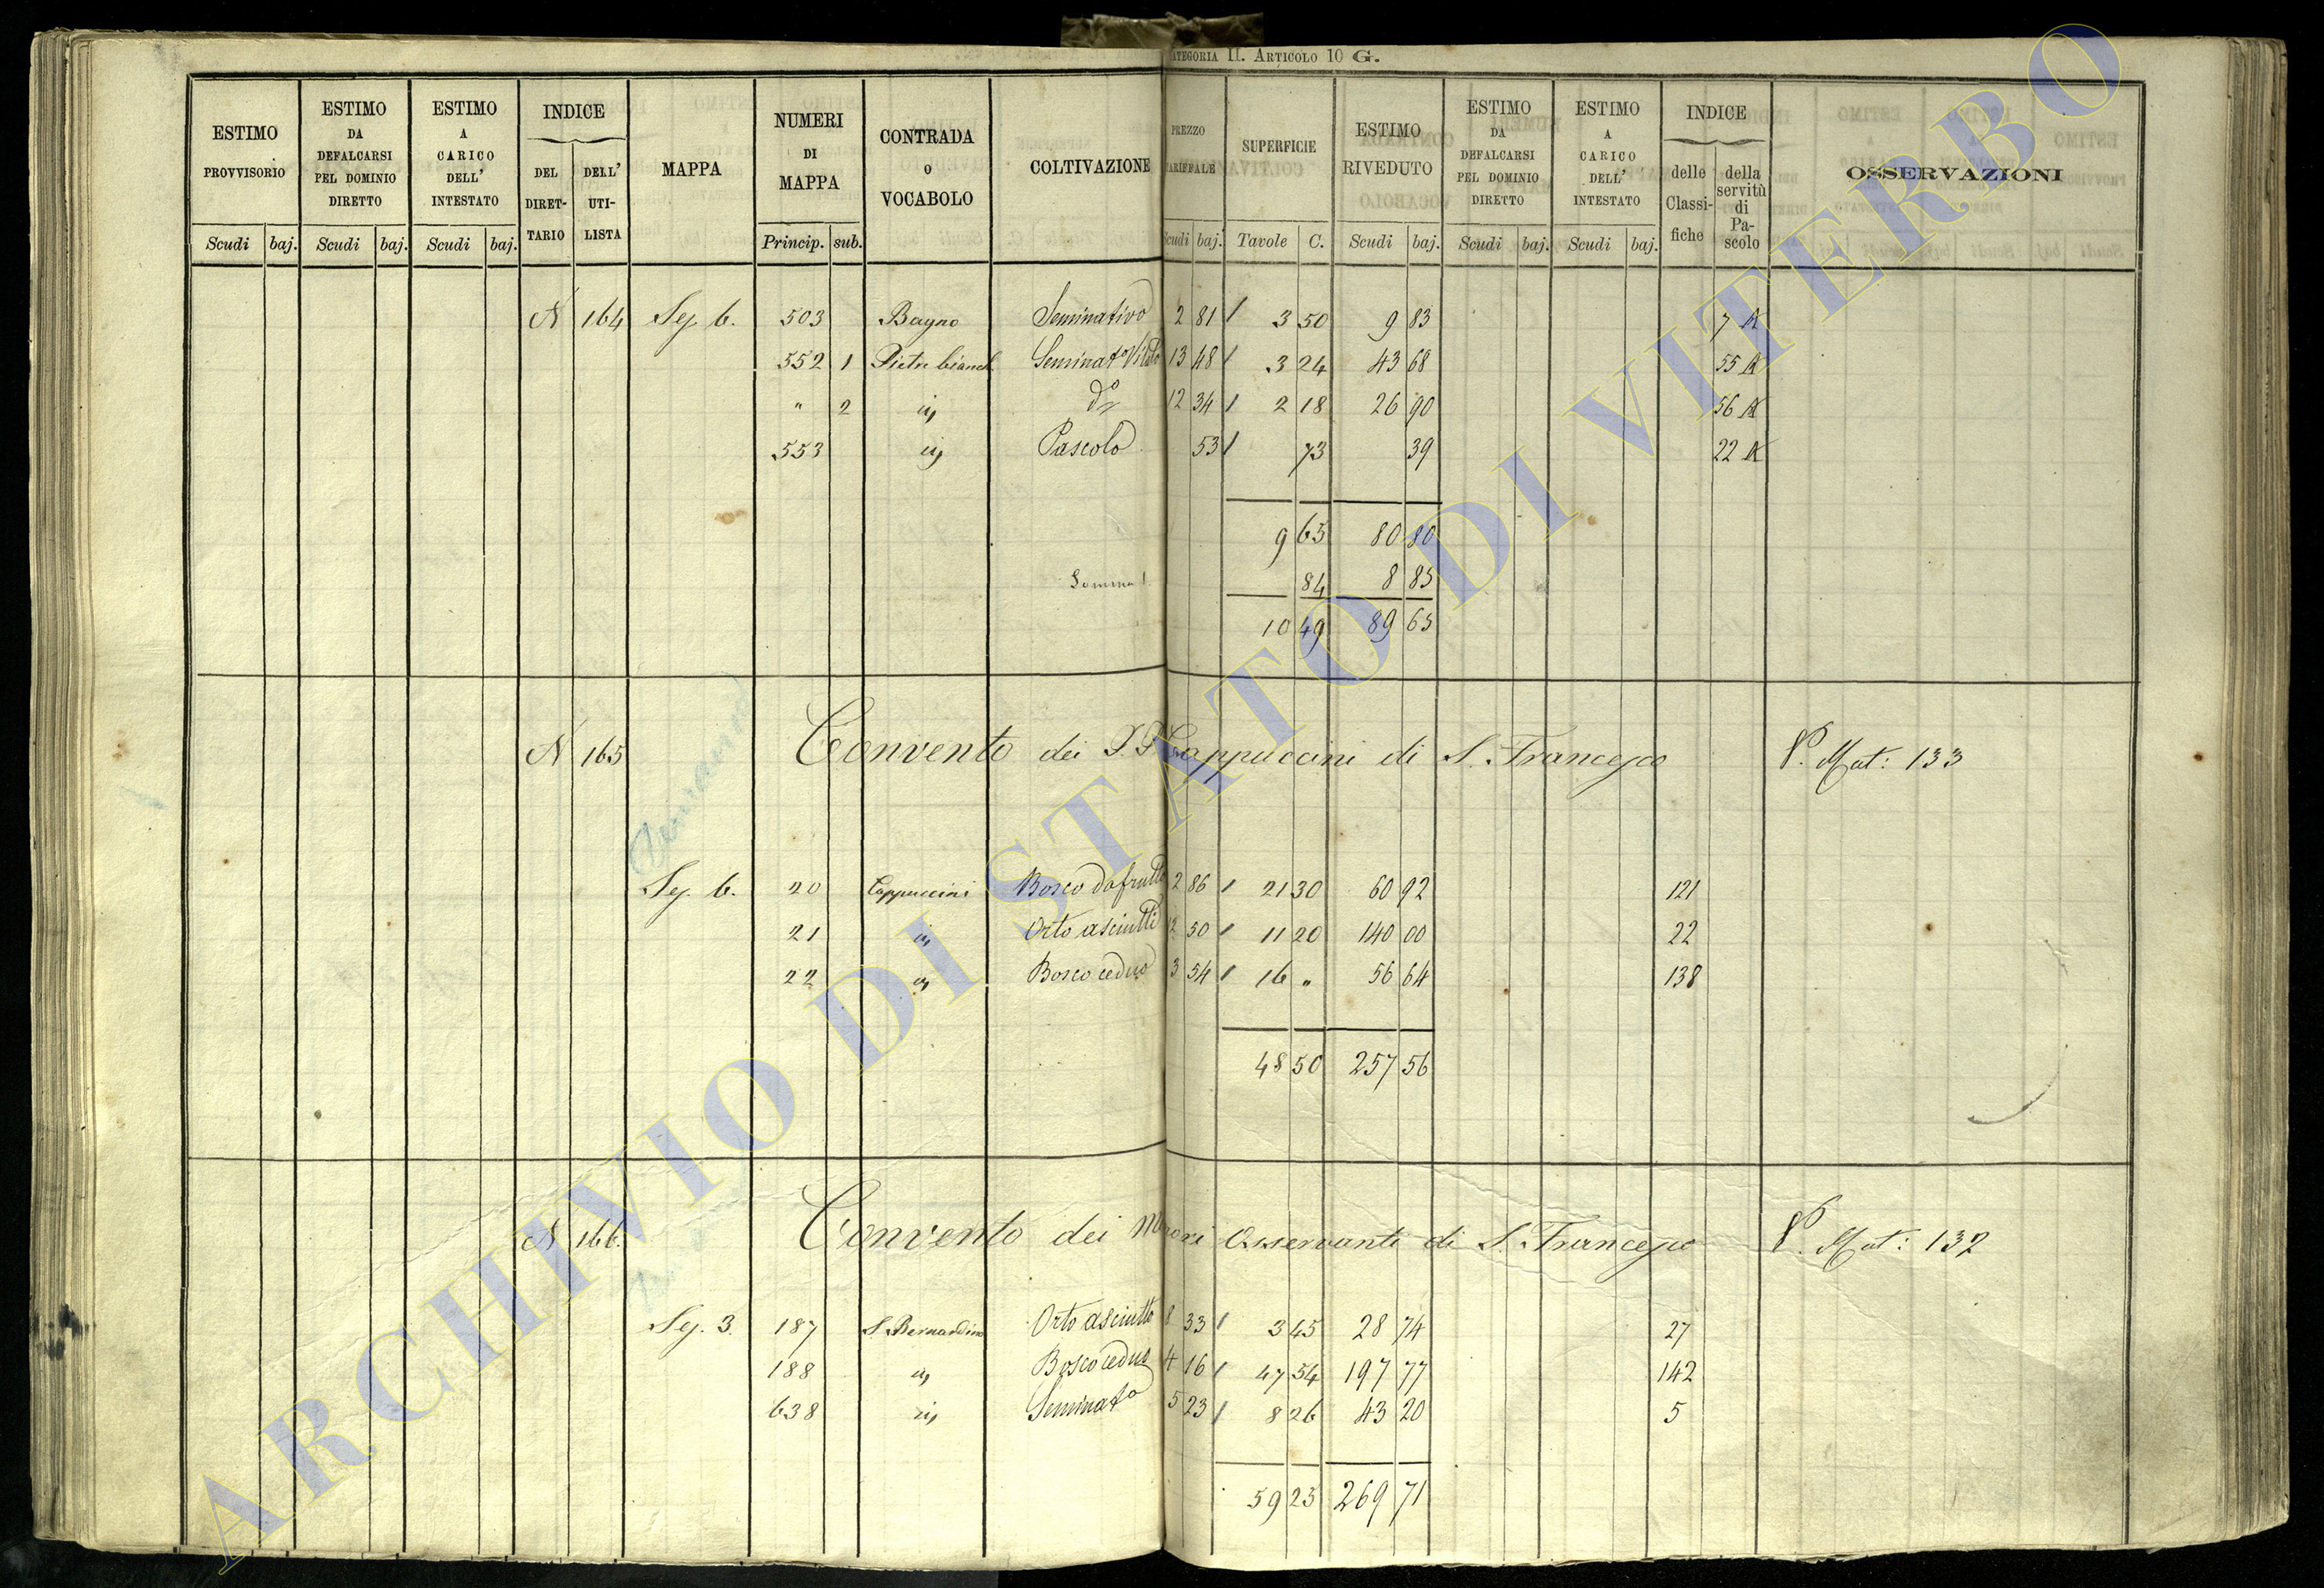 CATEGORIA II. ARTICOLO 10 G.
ESTIMO PROVVISORIO
ESTIMO DA DEFALCARSI PEL DOMINIO DIRETTO
ESTIMO A CARICO DELL' INTESTATO
INDICE
DEL DIRET-TARIO
DELL' UTI-LISTA
MAPPA
NUMERI DI MAPPA
CONTRADA O VOCABOLO
COLTIVAZIONE
PREZZO TARIFFALE
SUPERFICIE
ESTIMO RIVEDUTO
ESTIMO DA DEFALCARSI PEL DOMINIO DIRETTO
ESTIMO A CARICO DELL' INTESTATO
INDICE
delle Classi-fiche
della servitù di Pa-scolo
OSSERVAZIONI
Scudi baj. Scudi baj. Scudi baj. Princip. sub. Scudi baj. Tavole C. Scudi baj. Scudi baj. Scudi baj.
N 164 Sez. 6. 503 Bagno Seminativo 2 81 3 50 9 83 7
552 1 Pietre bianch. Seminat° Vitato 13 48 3 24 43 68 55
" 2 ivi d° 12 34 2 18 26 90 56
553 ivi Pascolo 53 73 39 22
9 65 80 80
Somma 84 8 85
10 49 89 65
N 165 Convento dei P.P. Cappuccini di S. Francesco P. Mat: 133
Sez. 6. 20 Cappuccini Bosco da frutto 2 86 21 30 60 92 121
21 ivi Orto asciutto 12 50 11 20 140 00 22
22 ivi Bosco ceduo 3 54 16 " 56 64 138
48 50 257 56
N 166. Convento dei Minori Osservanti di S. Francesco P. Mat: 132
Sez. 3. 187 S. Bernardino Orto asciutto 8 33 3 45 28 74 27
188 ivi Bosco ceduo 4 16 47 54 197 77 142
638 ivi Seminat° 5 23 8 26 43 20 5
59 25 269 71
ARCHIVIO DI STATO DI VITERBO